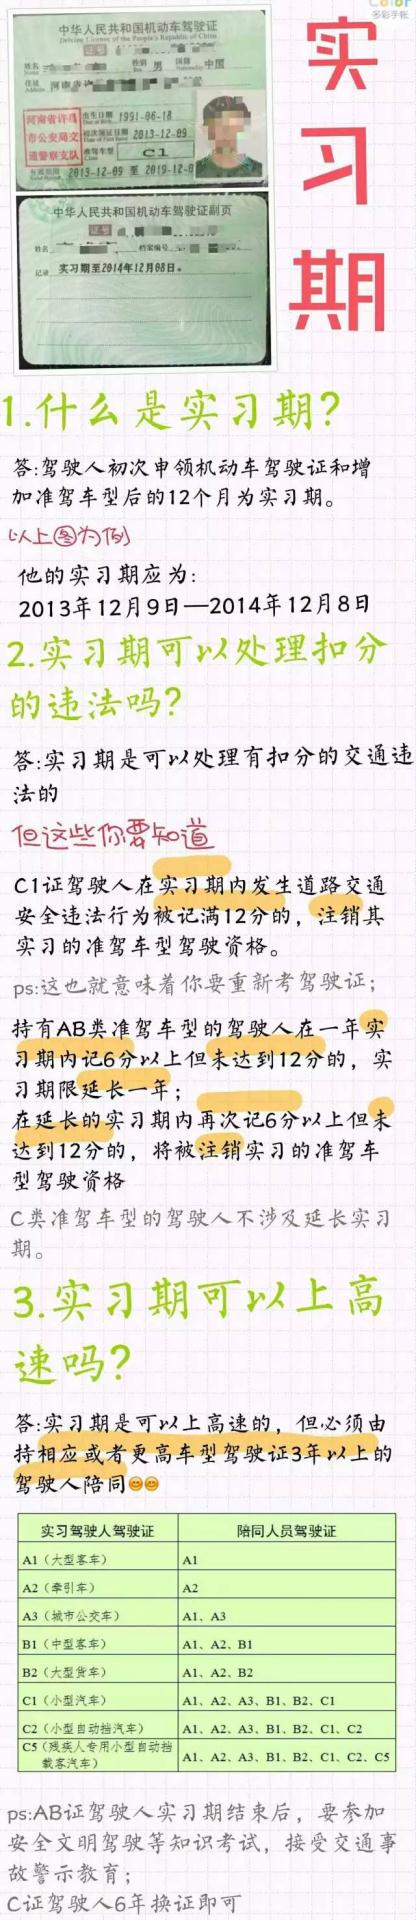 Color
多彩手帐
实
习
期
中华人民共和国机动车驾驶证
Driving License of the People's Republic of China
证号
姓名
性别 男 国籍 中国
住址 河南省许
河南省许昌
市公安局交
通警察支队
出生日期 1991-06-18
初次领证日期 2013-12-09
准驾车型 C1
有效期限 2013-12-09 至 2019-12-0
中华人民共和国机动车驾驶证副页
证号
姓名 档案编号
记录 实习期至2014年12月08日。
1.什么是实习期?
答:驾驶人初次申领机动车驾驶证和增
加准驾车型后的12个月为实习期。
以上图为例
他的实习期应为:
2013年12月9日—2014年12月8日
2.实习期可以处理扣分
的违法吗?
答:实习期是可以处理有扣分的交通违
法的
但这些你要知道
C1证驾驶人在实习期内发生道路交通
安全违法行为被记满12分的，注销其
实习的准驾车型驾驶资格。
ps:这也就意味着你要重新考驾驶证；
持有AB类准驾车型的驾驶人在一年实
习期内记6分以上但未达到12分的，实
习期限延长一年；
在延长的实习期内再次记6分以上但未
达到12分的，将被注销实习的准驾车
型驾驶资格
C类准驾车型的驾驶人不涉及延长实习
期。
3.实习期可以上高
速吗?
答:实习期是可以上高速的，但必须由
持相应或者更高车型驾驶证3年以上的
驾驶人陪同😊😊
实习驾驶人驾驶证 陪同人员驾驶证
A1（大型客车） A1
A2（牵引车） A2
A3（城市公交车） A1、A3
B1（中型客车） A1、A2、B1
B2（大型货车） A1、A2、B2
C1（小型汽车） A1、A2、A3、B1、B2、C1
C2（小型自动挡汽车） A1、A2、A3、B1、B2、C1、C2
C5（残疾人专用小型自动挡
载客汽车） A1、A2、A3、B1、B2、C1、C2、C5
ps:AB证驾驶人实习期结束后，要参加
安全文明驾驶等知识考试，接受交通事
故警示教育；
C证驾驶人6年换证即可